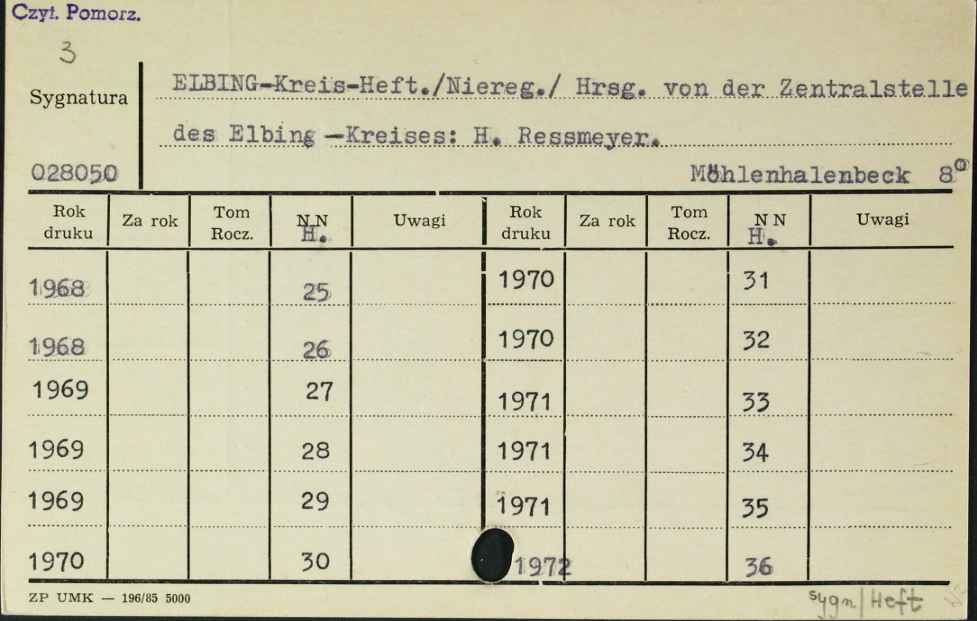 Czyt. Pomorz.
3
Sygnatura
028050
ELBING-Kreis-Heft./Niereg./ Hrsg. von der Zentralstelle
des Elbing -Kreises: H. Ressmeyer.
Möhlenhalenbeck 8⁰
Rok druku Za rok Tom Rocz. N N H. Uwagi Rok druku Za rok Tom Rocz. N N H. Uwagi
1968 25 1970 31
1968 26 1970 32
1969 27 1971 33
1969 28 1971 34
1969 29 1971 35
1970 30 1972 36
ZP UMK — 196/85 5000
sygn/Heft